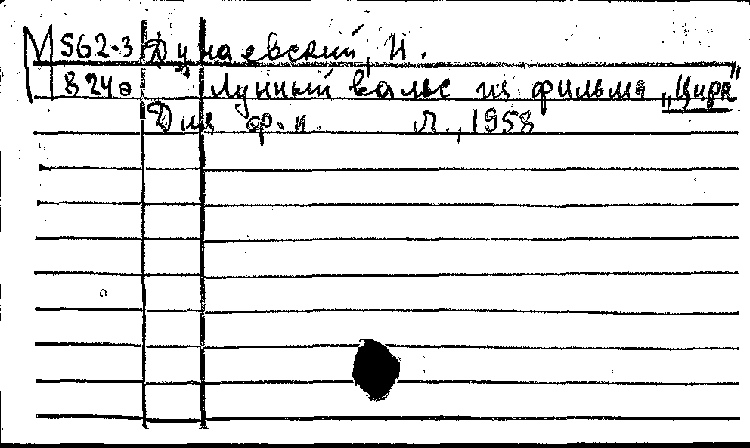 М 562-3 Дунаевский, И.
824а Лунный вальс из фильма „Цирк"
Для ф.-п. Л., 1958